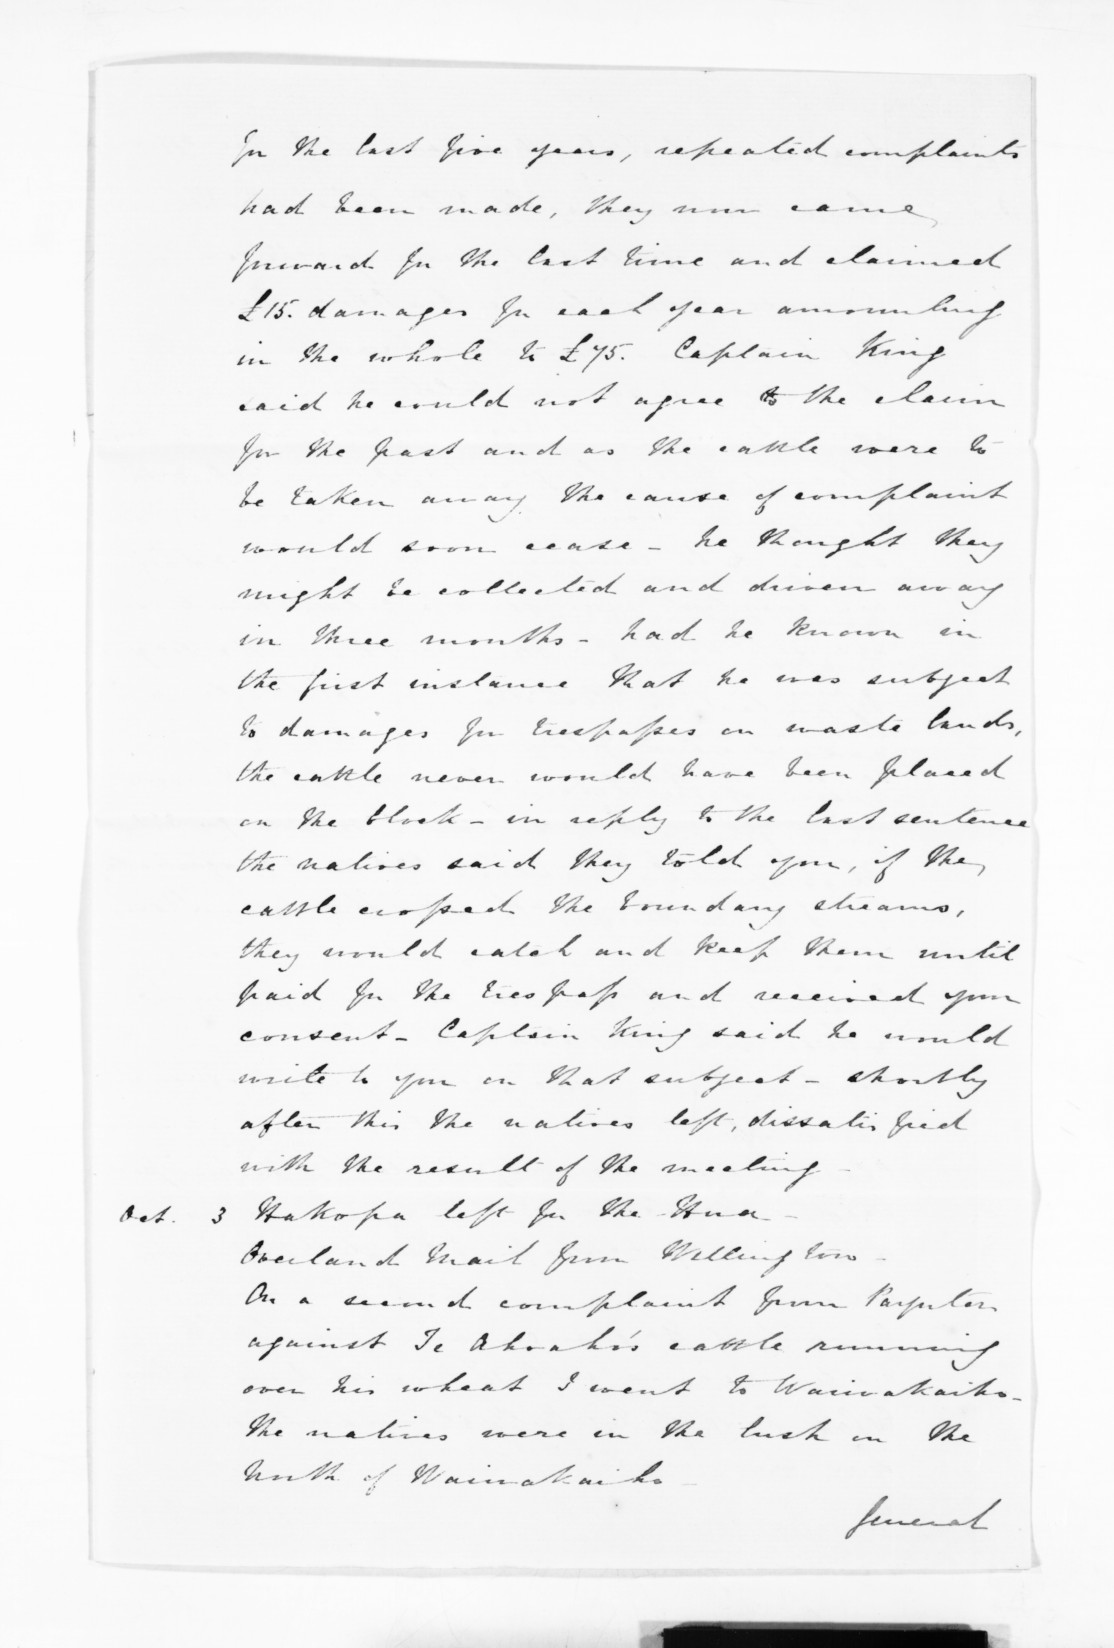 for the last five years, repeated complaints
had been made, they now came
forward for the last time and claimed
£15. damages for each year amounting
in the whole to £75. Captain King
said he could not agree to the claim
for the past and as the cattle were to
be taken away the cause of complaint
would soon cease - he thought they
might be collected and driven away
in three months - had he known in
the first instance that he was subject
to damages for trespasses on waste lands,
the cattle never would have been placed
on the block - in reply to the last sentence
the natives said they told you, if the
cattle crossed the boundary streams,
they would catch and keep them until
paid for the trespass and received your
consent - Captain King said he would
write to you on that subject - shortly
after this the natives left, dissatisfied
with the result of the meeting -
Oct. 3 Hakopa left for the Hua -
Overland Mail from Wellington -
On a second complaint from Paynter
against Te Ahoaho's cattle running
over his wheat I went to Waiwakaiho -
the natives were in the bush on the
North of Waiwakaiho -
General